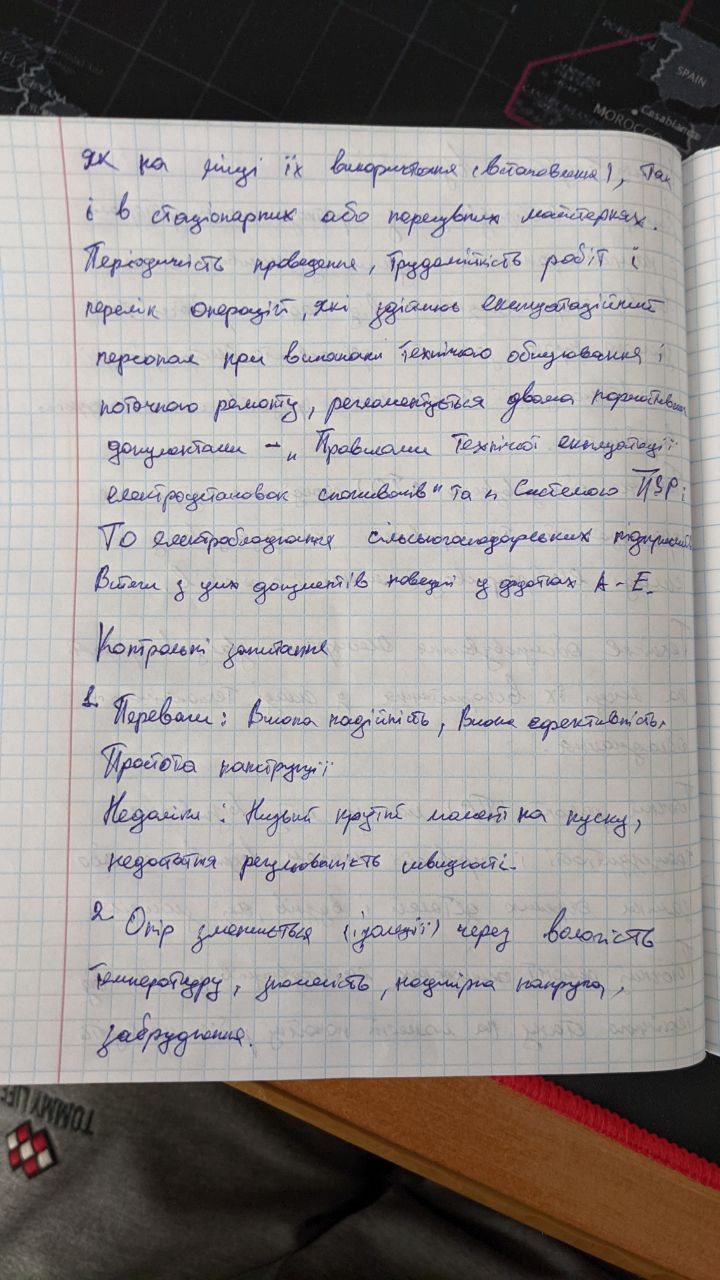 SPAIN
MOROCCO
Casablanca
як на місці їх використання (встановлення), так
і в стаціонарних або пересувних майстернях.
Періодичність проведення, трудомісткість робіт і
перелік операцій, які здійснює експлуатаційний
персонал при виконанні технічного обслуговування і
поточного ремонту, регламентується двома нормативними
документами – „Правилами технічної експлуатації
електроустановок споживачів" та „ Системою ПЗР і
ТО електрообладнання сільськогосподарських підприємств
Витяги з цих документів наведені у додатках А - Е.
Контрольні запитання
1. Переваги: Висока надійність, Висока ефективність,
Простота конструкції
Недоліки: Низький крутний момент на пуску,
недостатня регульованість швидкості.
2. Опір зменшується (ізоляції) через вологість
температуру, зношеність, надмірна напруга,
забруднення.
TOMMY LIFE